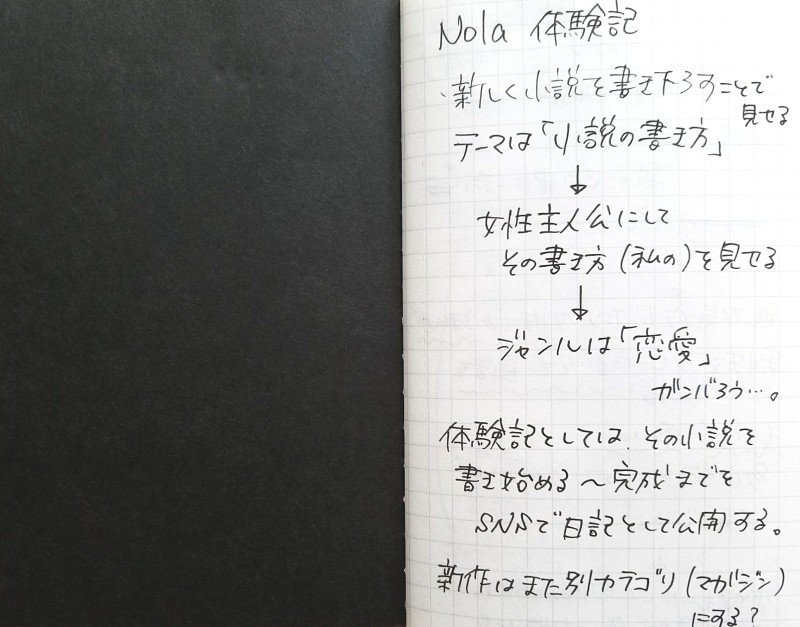 Nola 体験記
・新しく小説を書き下ろすことで
見せる
テーマは「小説の書き方」
↓
女性主人公にして
その書き方(私の)を見せる
↓
ジャンルは「恋愛」
ガンバろう…。
体験記としては、その小説を
書き始める〜完成までを
SNSで日記として公開する。
新作はまた別カテゴリ(マガジン)
にする?